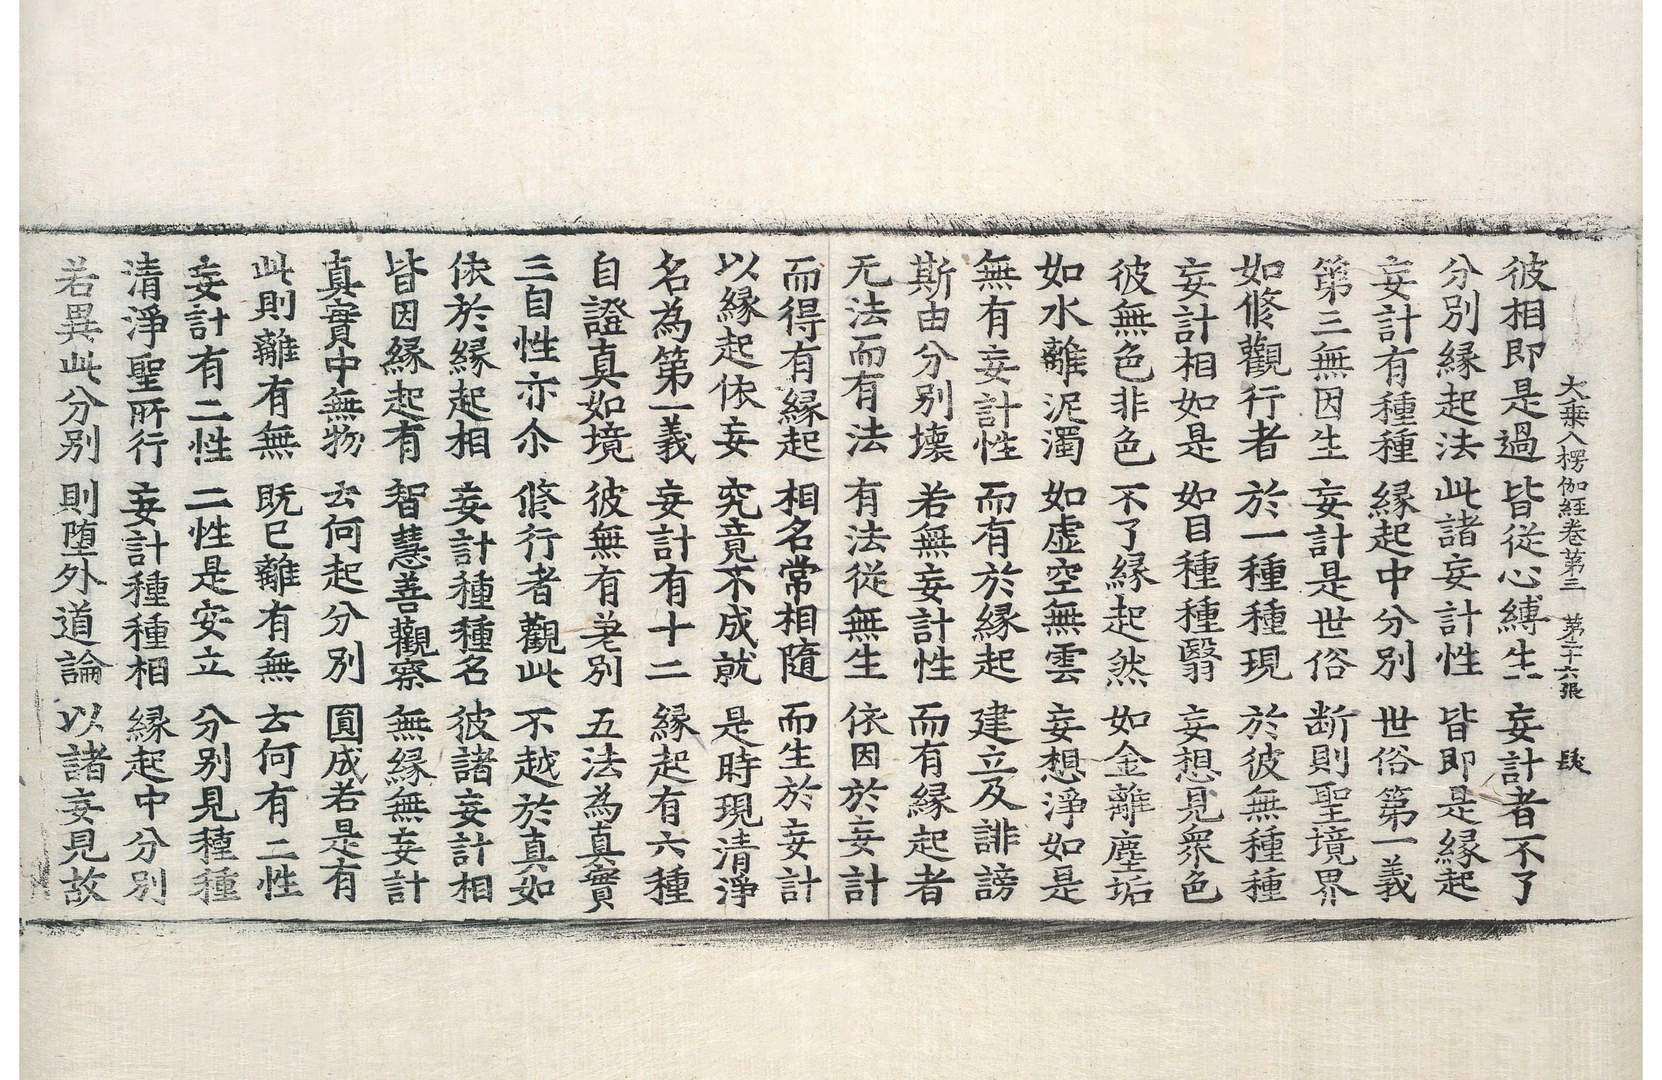 大乘入楞伽經卷第三 第二十六張 髮
彼相即是過 皆從心縛生 妄計者不了
分別緣起法 此諸妄計性 皆即是緣起
妄計有種種 緣起中分別 世俗第一義
第三無因生 妄計是世俗 断則聖境界
如修觀行者 於一種種現 於彼無種種
妄計相如是 如目種種翳 妄想見衆色
彼無色非色 不了緣起然 如金離塵垢
如水離泥濁 如虛空無雲 妄想淨如是
無有妄計性 而有於緣起 建立及誹謗
斯由分別壞 若無妄計性 而有緣起者
无法而有法 有法從無生 依因於妄計
而得有緣起 相名常相隨 而生於妄計
以緣起依妄 究竟不成就 是時現清淨
名為第一義 妄計有十二 緣起有六種
自證真如境 彼無有差別 五法為真實
三自性亦尒 修行者觀此 不越於真如
依於緣起相 妄計種種名 彼諸妄計相
皆因緣起有 智慧善觀察 無緣無妄計
真實中無物 云何起分別 圓成若是有
此則離有無 既已離有無 云何有二性
妄計有二性 二性是安立 分別見種種
清淨聖所行 妄計種種相 緣起中分別
若異此分別 則墮外道論 以諸妄見故